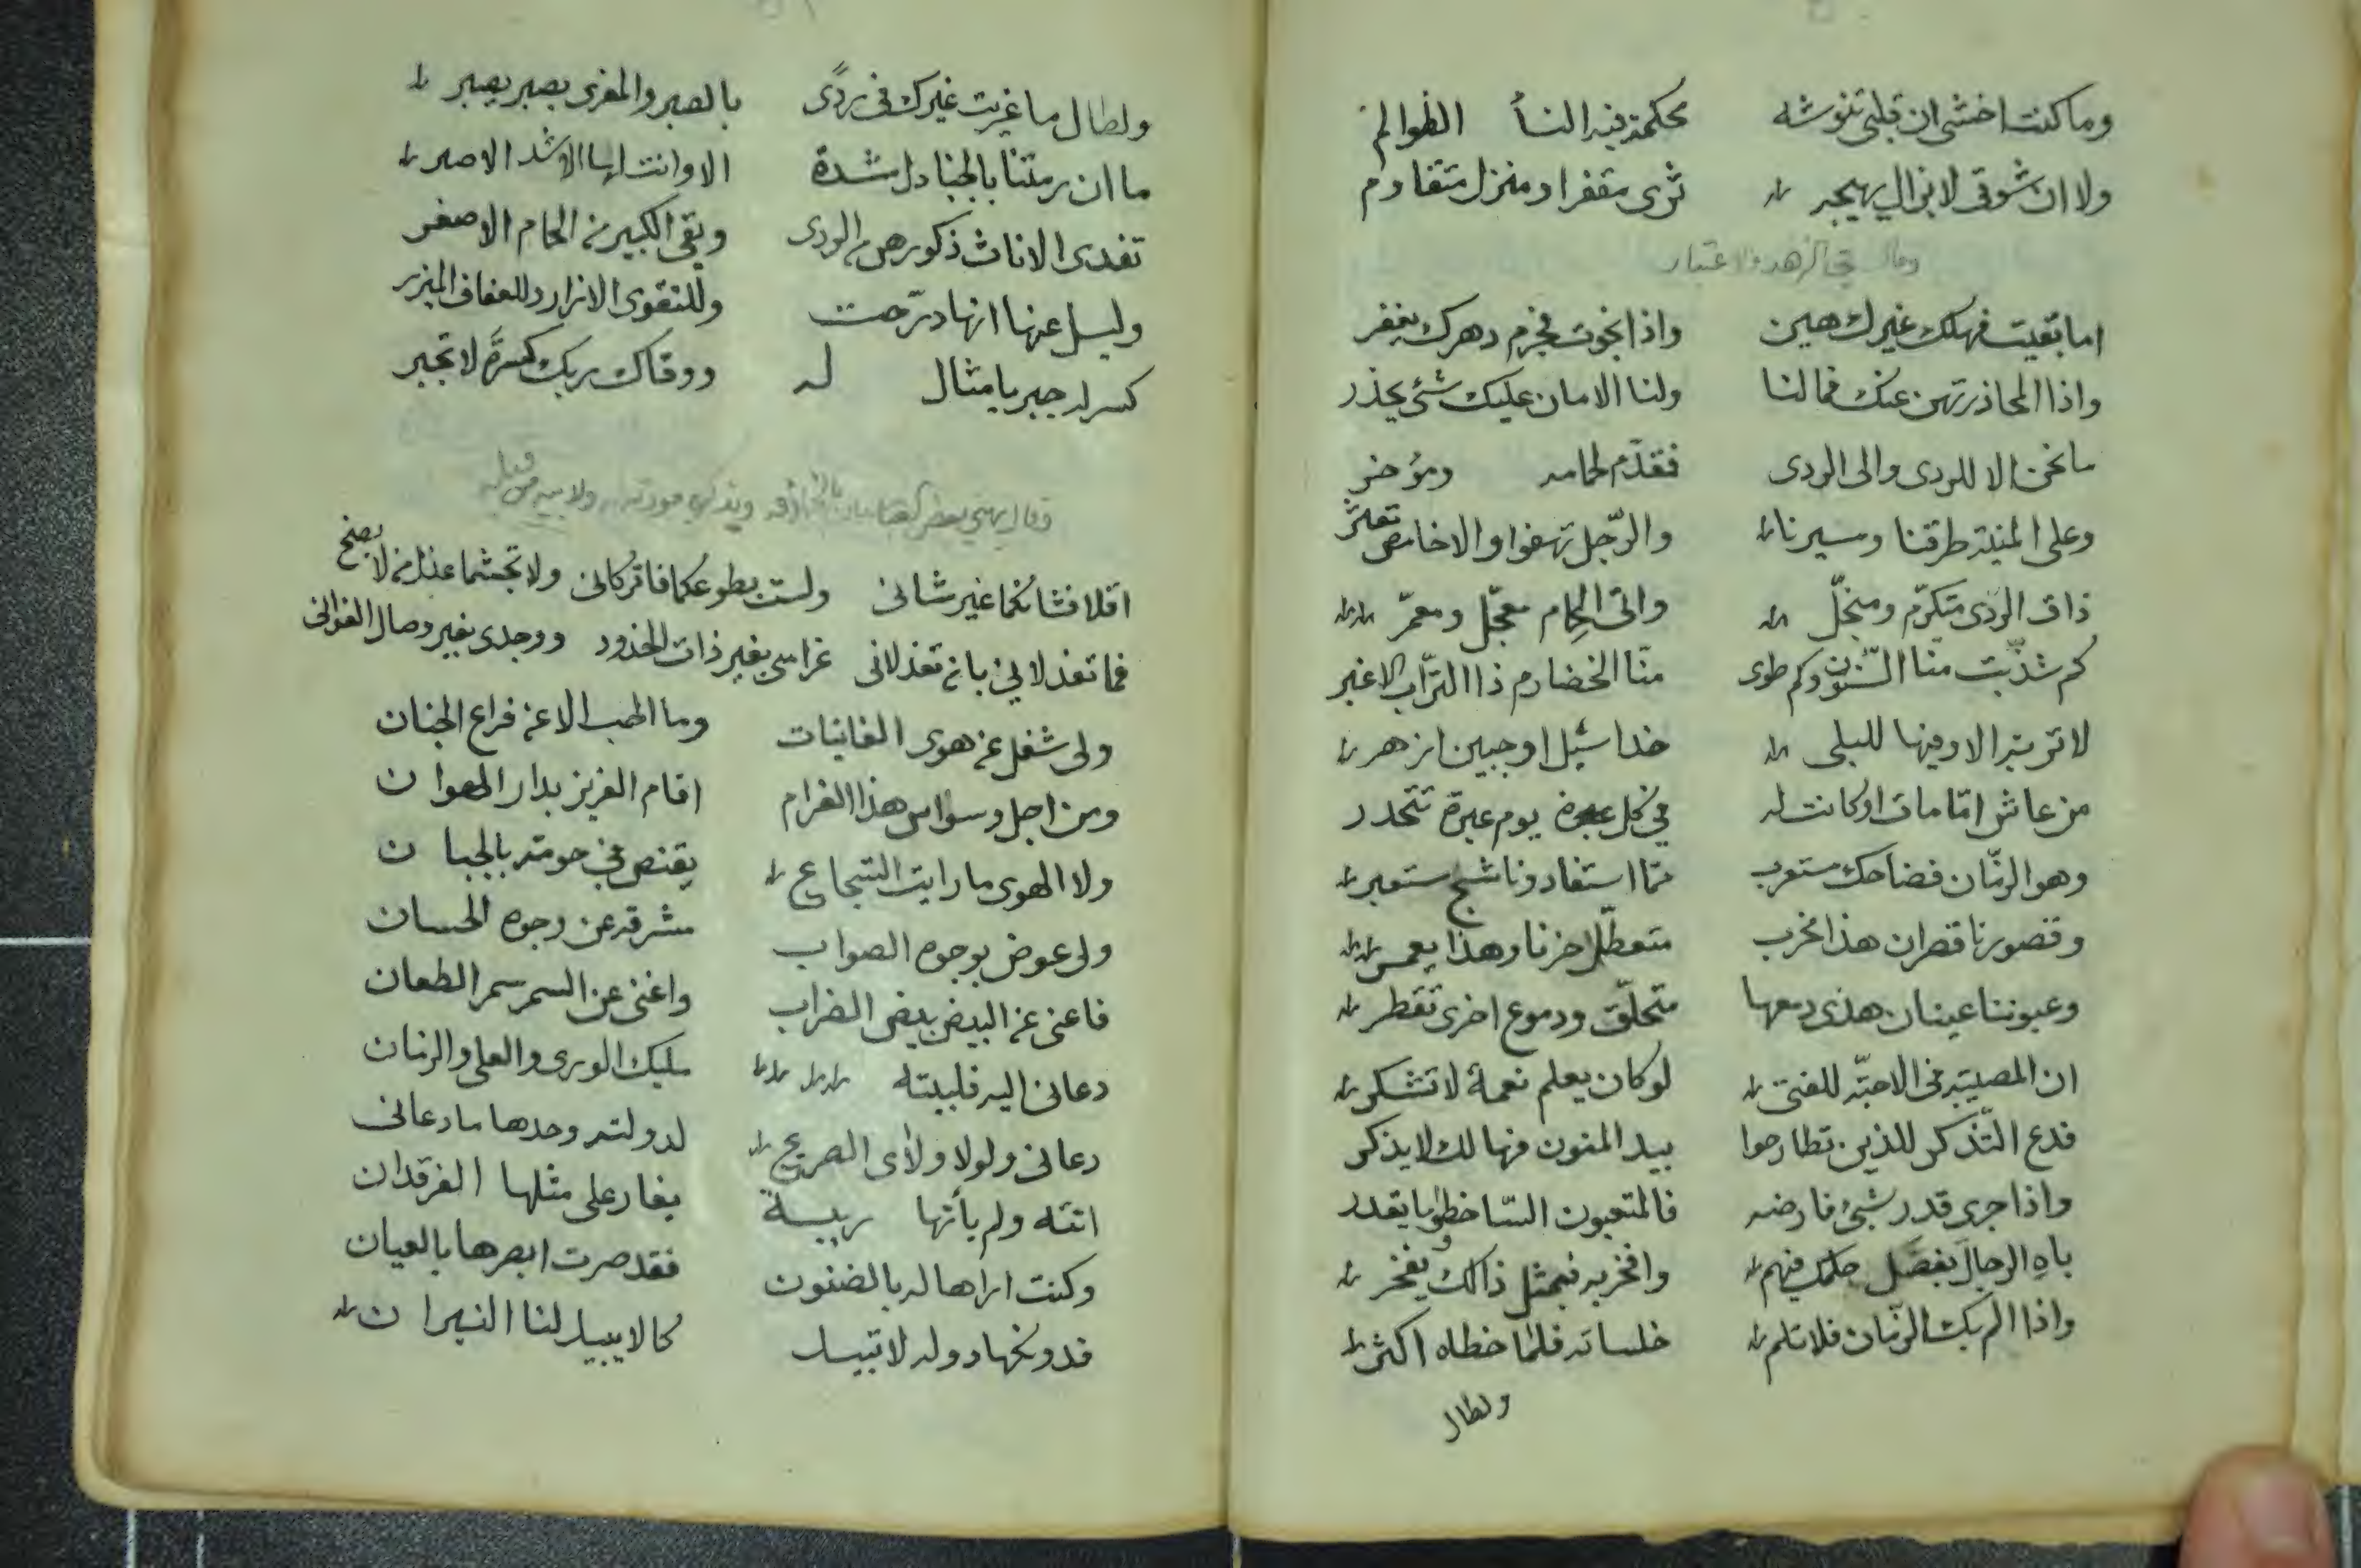 وما كنت اخشى ان قلبى تنوشه محكمة فيه النسأ الظوالم
ولا ان شوقى لا يزال يهيجه ثرى مقفر او منزل متقادم
وقال في الزهد والاعتبار
اما بقيت فهلك غيرك هين واذا نجوت فجرم دهرك يغفر
واذا المحاذرتهن عنك فما لنا ولنا الامان عليك شئ يحذر
ما نحن الا للردى والى الردى فمقدّم لحمامه ومؤخر
وعلى المنية طرقنا ومسيرنا والرّجل تهفوا والاخامص تعثر
ذاق الردى متكرّم ومبخّل واتى الحِمام معجّل ومعمّر
كم شذّبت منا السّنون وكم طوى منّا الخضارم ذا التّراب الاغبر
لا تربة الا وفيها للبلى خد اسيل او جبين ازهر
من عاش امّا مات او كانت له في كل يوم عبرة تتحدر
وهو الزّمان فضاحك مستعرب ممّا استفاد وناشج مستعبر
وقصورنا قصران هذا مخرب متعطّل حزنا وهذا يعمر
وعيوننا عينان هذى دمعها متحلّق ودموع اخرى تقطر
ان المصيبة فى الاحبّة للفتى لو كان يعلم نعمة لا تشكر
فدع التّذكر للذين تطارحوا بيد المنون فهالك لا يذكر
واذا جرى قدر بشئ فارضه فالمتعبون السّاخطوا ما يقدر
باهِ الرجالَ بفضل حلمك فيهم وافخر به فبمثل ذالك يفخر
واذا الم بك الزّمان فلا تلم خلساته فلما خطاه اكثر
ولطال
ولطال ما غريت غيرك فى ردًى بالصبر والمغرى بصبر يصبر
ما ان رمتنا بالجنادل شدة الا وانت لها الاشد الاصبر
تفدى الاناث ذكورهن من الردى ويقى الكبير من الحمام الاصغر
وليسل عنها انها درّجت وللتقوى الازار وللعفاف الميزر
كسر له جبر بامثال له ووقاك ربك كسرةً لا تجبر
وقال يهنى بعض
اقلا فشانكما غير شانى ولست بطوعكما فاتركانى ولا تجشما عذل من لا يصخ
فما تعذلا بي بان تعذلانى غرامى بغير ذات الخدود ووجدى بغير وصال الغوانى
ولى شغل عن هوى الغانيات وما الحب الا عن فراغ الجنان
ومن اجل وسواس هذا الغرام اقام العزيز بدار الهوان
ولا الهوى ما رايت الشجاع يقنص في حومته بالجبان
ولى عوض بوجوه الصواب مشرقة عن وجوه الحسان
فاغنى عن البيض بيض الضراب واغنى عن السمر سمر الطعان
دعانى اليه فلبيته مليك الورى والعلى والزمان
دعانى ولولا ولاى الصريح لدولته وحدها ما دعانى
اتته ولم يأتها ريبة يغار على مثلها الفرقدان
وكنت اراها له بالضنون فقد صرت ابصرها بالعيان
فدونكها دولة لا تبيد كما لا يبيد لنا النيران